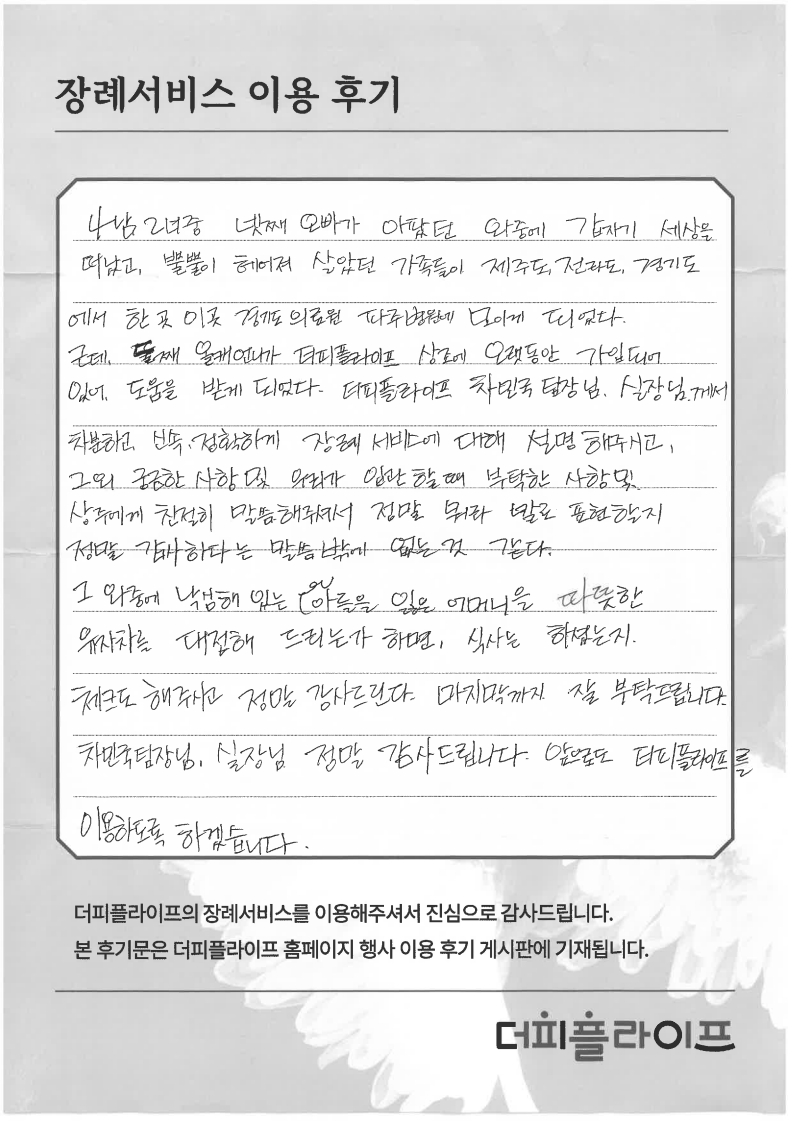 장례서비스 이용 후기
4남 2녀중 넷째 오빠가 아팠던 와중에 갑자기 세상을
떠났고, 뿔뿔이 헤어져 살았던 가족들이 제주도, 전라도, 경기도
에서 한 곳 이곳 경기도 의료원 파주병원에 모이게 되었다.
근데, 둘째 올케언니가 더피플라이프 상조에 오랫동안 가입되어
있어, 도움을 받게 되었다. 더피플라이프 차민국 팀장님, 실장님께서
차분하고, 신속, 정확하게 장례 서비스에 대해 설명해주시고,
그외 궁금한 사항 및 우리가 입관 할 때 부탁한 사항 및
상주에게 친절히 말씀해주셔서 정말 뭐라 말로 표현할지
정말 감사하다는 말씀 밖에 없는 것 같다.
그 와중에 낙심해 있는 아들을 잃은 어머니을 따뜻한
유자차를 대접해 드리는가 하면, 식사는 하셨는지.
체크도 해주시고 정말 감사드린다. 마지막까지 잘 부탁드립니다.
차민국팀장님, 실장님 정말 감사드립니다. 앞으로도 더피플라이프를
이용하도록 하겠습니다.
더피플라이프의 장례서비스를 이용해주셔서 진심으로 감사드립니다.
본 후기문은 더피플라이프 홈페이지 행사 이용 후기 게시판에 기재됩니다.
더피플라이프